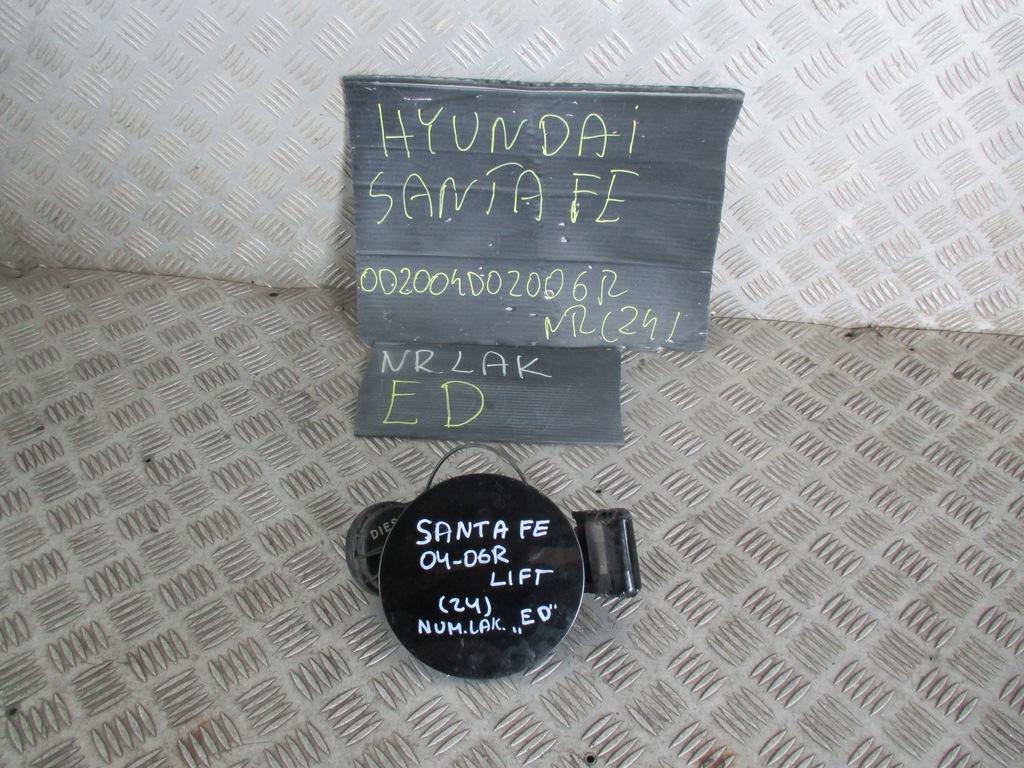 HYUNDAi
SANTA FE
OD2004DO2006R
NR(24)
NR LAK
ED
DIES
SANTA FE
04-06R
LIFT
(24)
NUM.LAK. „ED"